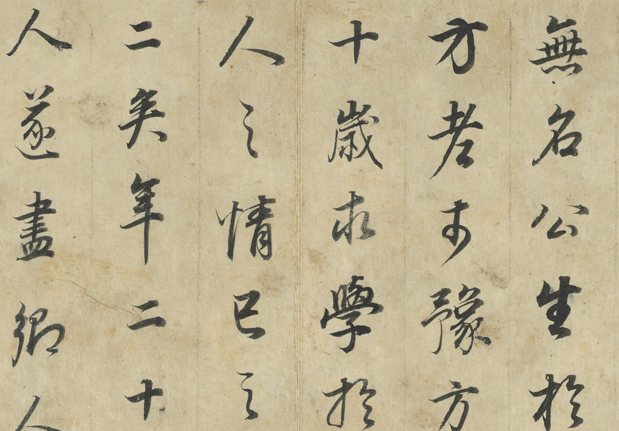 無名公生於
方老于豫方
十歲求學於
人之情已之
二矣年二十
人遂盡鄉